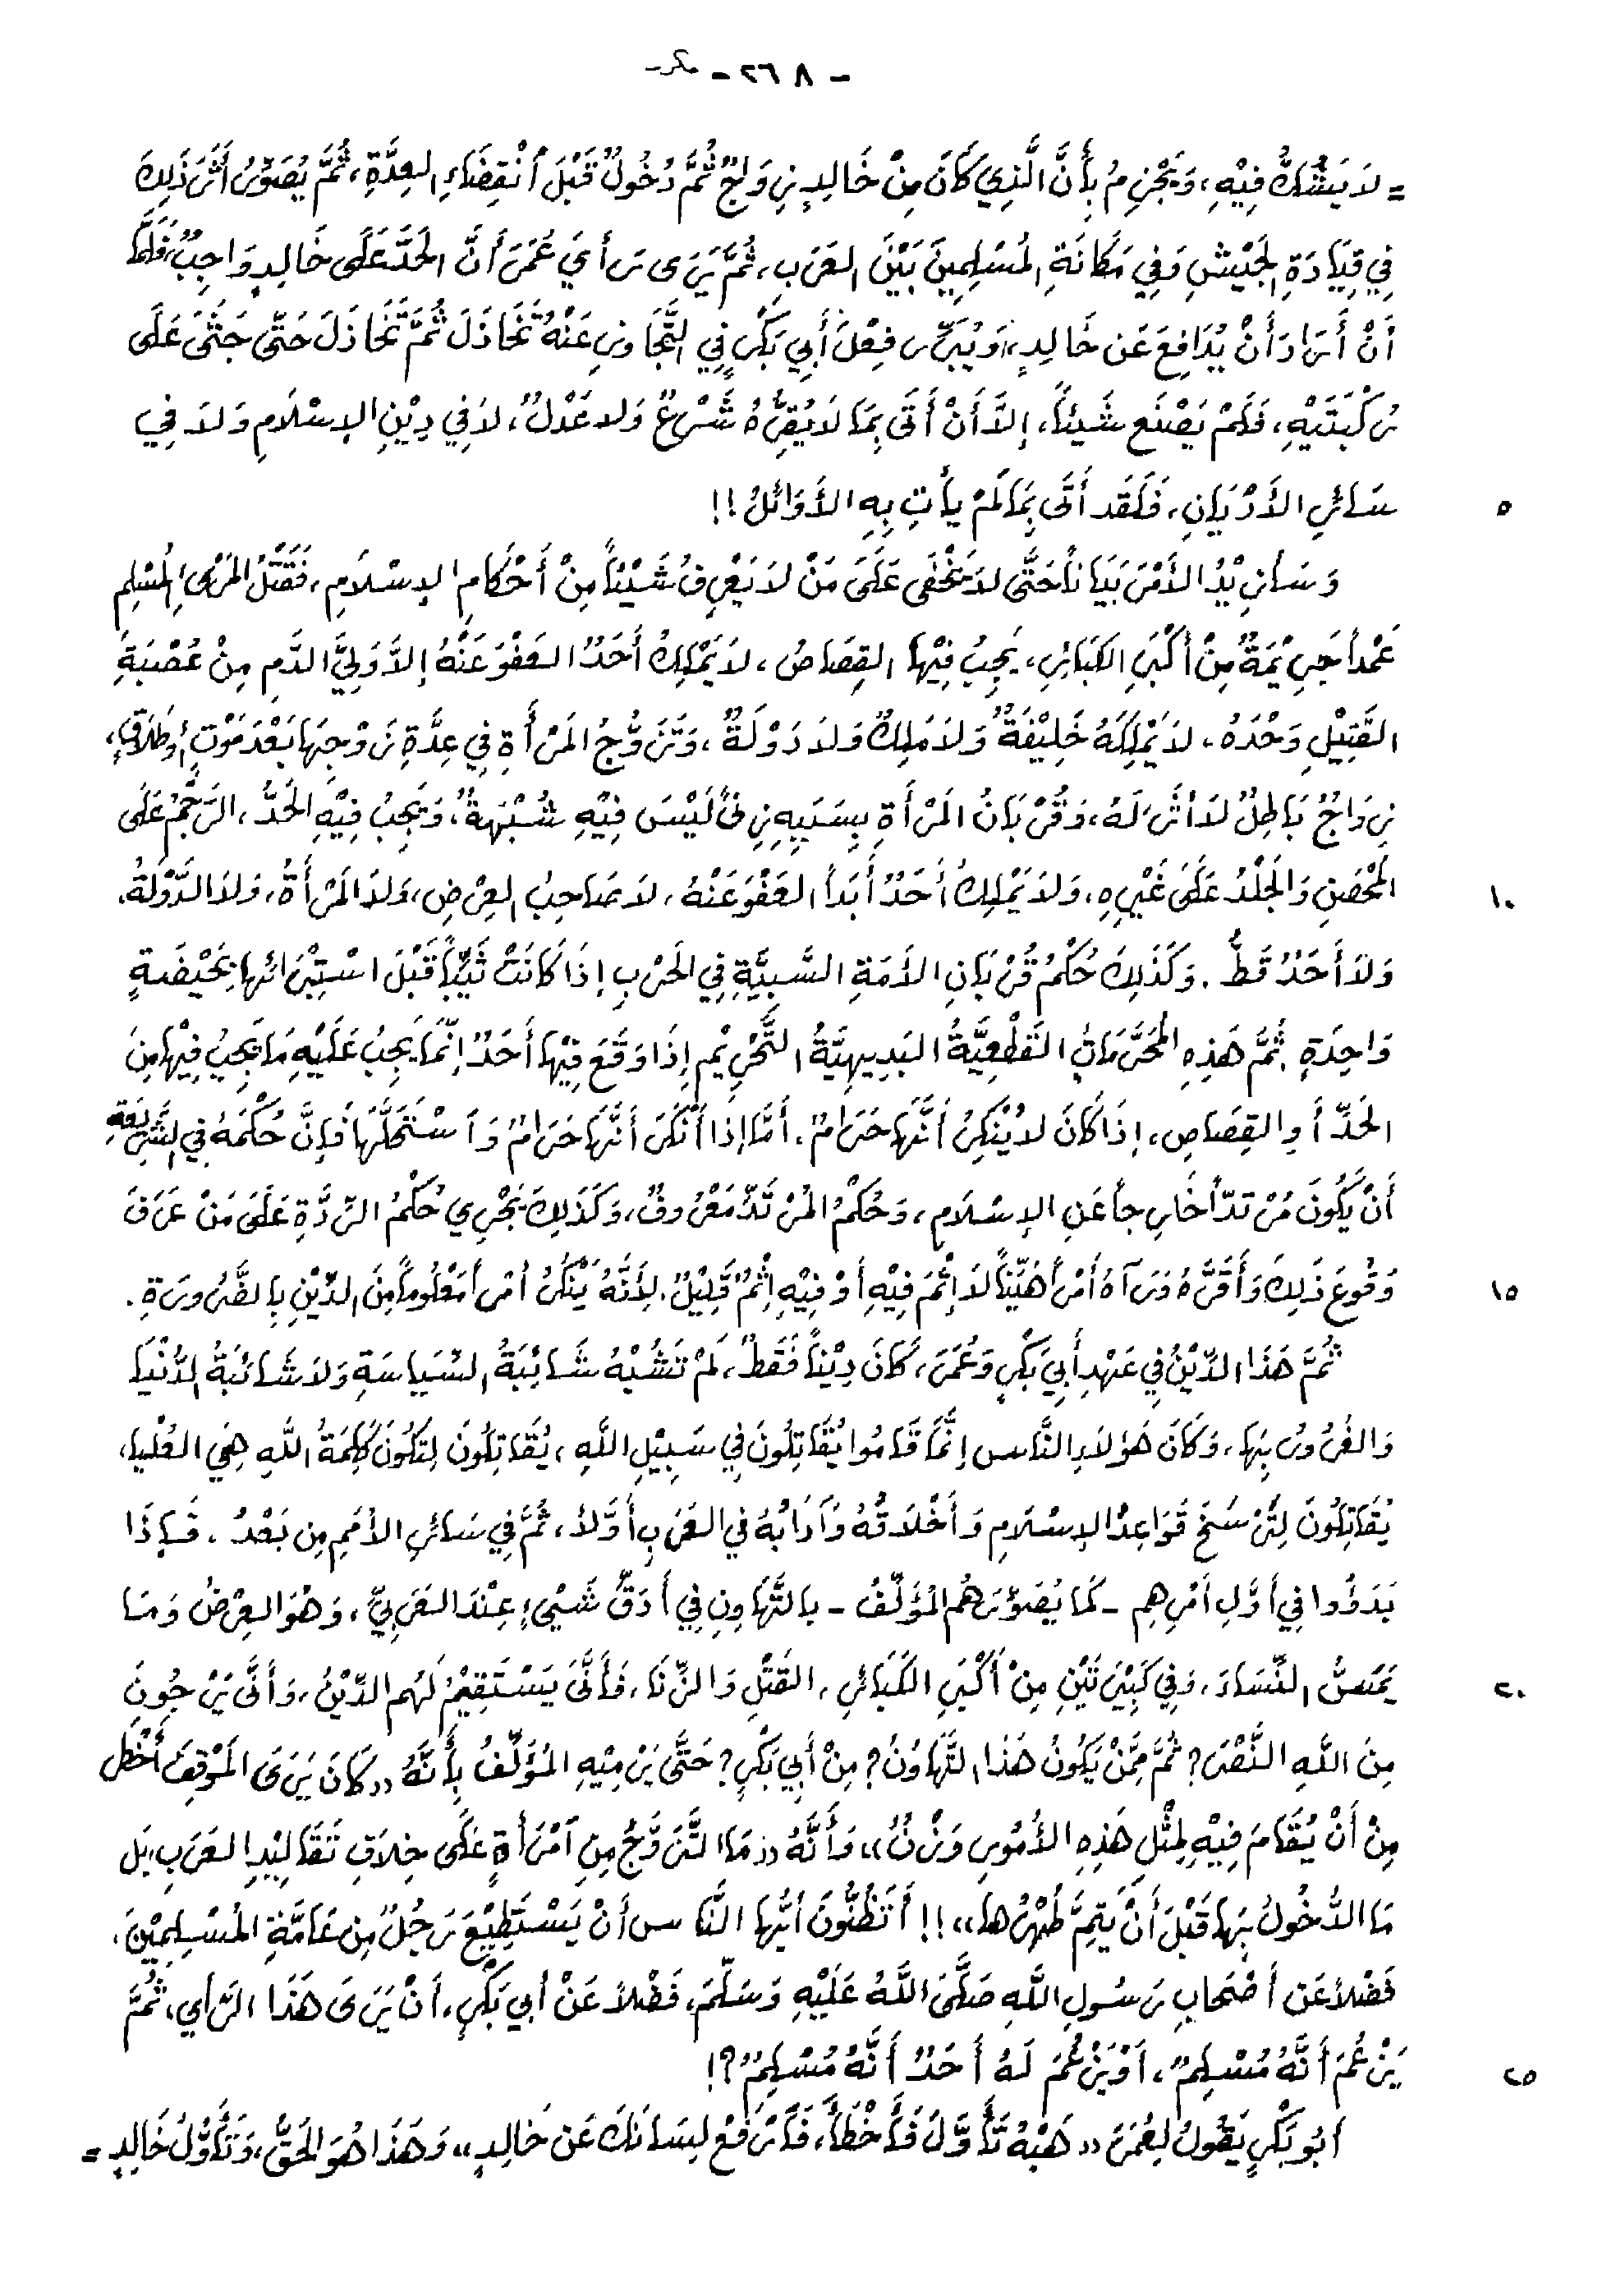 - ٢٦٨ - مكرر
= لَا يَشُكُّ فِيْهِ، وَيَجْزِمُ بِأَنَّ الَّذِي كَانَ مِنْ خَالِدٍ زِوَاجٌ ثُمَّ دُخُولٌ قَبْلَ ٱنْقِضَاءِ العِدَّةِ، ثُمَّ يُصَوِّرُ أَثَرَ ذَلِكَ
فِي قِيَادَةِ الجَيْشِ وَفِي مَكَانَةِ المُسْلِمِينَ بَيْنَ العَرَبِ، ثُمَّ يَرَى رَأيَ عُمَرَ أَنَّ الحَدَّ عَلَى خَالِدٍ وَاجِبٌ، فَلَمَّا
أَنْ أَرَادَ أَنْ يُدَافِعَ عَن خَالِدٍ، وَيُبَرِّرَ فِعْلَ أَبِي بَكْرٍ فِي التَّجَاوزِ عَنْهُ تَخَاذَلَ ثُمَّ تَخَاذَلَ حَتَّى جَثَى عَلَى
رُكْبَتَيْهِ، فَلَمْ يَصْنَع شَيئاً، إلَّا أَنْ أَتَى بِمَا لَا يُقِرُّهُ شَرْعٌ وَلا عَدْلٌ، لَا فِي دِيْنِ الإسْلَامِ وَلَا فِي
سَائرِ الأَدْيَانِ، فَلَقَد أَتَى بِمَا لَمْ يأتِ بِهِ الأَوَائلُ!!
٥
وَسَأزِيْدُ الأَمْرَ بَيَاناً حَتَّى لَا يَخْفَى عَلَى مَنْ لَا يَعْرِفُ شَيْئاً مِنْ أَحْكَامِ الإسْلَامِ، فَقَتْلُ المَرْءِ المُسْلِمِ
عَمْداً جَرِيْمَةٌ مِنْ أَكْبَرِ الكَبَائرِ، يَجِبُ فِيْهَا القِصَاصُ، لَا يَمْلِكُ أَحَدٌ العَفْوَ عَنْهُ إلَّا وَلِيُّ الدَّمِ مِنْ عُصْبَةِ
القَتِيْلِ وَحْدَهُ، لَا يَمْلِكَهُ خَلِيْفَةٌ وَلَا مَلِكٌ وَلَا دَوْلَةٌ، وَتَزَوُّجُ المَرْأَةِ فِي عِدَّةِ زَوْجِهَا بَعْدَ مَوْتٍ أو طَلَاقٍ،
زِوَاجٌ بَاطِلٌ لَا أَثَرَ لَهُ، وَقُرْبَانُ المَرْأَةِ بِسَبَبِهِ زِنىً لَيْسَ فِيْهِ شُبْهَةٌ، وَيَجِبُ فِيْهِ الحَدُّ، الرَجْمُ عَلَى
المُحْصَنِ وَالجَلْدُ عَلَى غَيْرِهِ، وَلَا يَمْلِكُ أَحَدٌ أَبَداً العَفْوَ عَنْهُ، لَا صَاحِبُ العِرْضِ، وَلَا المَرْأَةُ، وَلَا الدَّوْلَةُ،
١٠
وَلَا أَحَدٌ قَطُّ. وَكَذَلِكَ حُكْمُ قُرْبَانِ الأَمَةِ السَّبِيَّةِ فِي الحَرْبِ إذَا كَانَتْ ثَيِّباً قَبْلَ اسْتِبْرَائهَا بِحَيْضَةٍ
وَاحِدَةٍ. ثُمَّ هَذِهِ المُحَرَّمَاتُ القَطْعِيَّةُ البَدِيهِيَّةُ التَّحْرِيْمِ إذَا وَقَعَ فِيْهَا أَحَدٌ إنَّمَا يَجِبُ عَلَيْهِ مَا يَجِبُ فِيْهَا مِنَ
الحَدِّ أَوِ القِصَاصِ، إذَا كَانَ لا يُنْكِرُ أَنَّهَا حَرَامٌ، أَمَّا إذَا أَنْكَرَ أَنَّهَا حَرَامٌ وَٱسْتَحَلَّهَا فَإنَّ حُكْمَهُ فِي الشَّرِيْعَةِ
أَنْ يَكُونَ مُرْتَدّاً خَارِجاً عَنِ الإسْلَامِ، وَحُكْمُ المُرْتَدِّ مَعْرُوفٌ، وَكَذَلِكَ يَجْرِي حُكْمُ الرِّدَّةِ عَلَى مَنْ عَرَفَ
وَقُوعَ ذَلِكَ وَأَقَرَّهُ وَرَآهُ أَمْراً هَيِّناً لَا إثْمَ فِيْهِ أَوْ فِيْهِ إثْمٌ قَلِيْلٌ. لِأَنَّهُ يُنْكِرُ أمْراً مَعْلُوماً مِنَ الدِّيْنِ بِالضَّرُورَةِ.
١٥
ثُمَّ هَذَا الدِّيْنُ فِي عَهْدِ أَبِي بَكْرٍ وَعُمَرَ، كَانَ دِيْناً فَقَطْ، لَمْ تَشُبْهُ شَائِبَةُ السِّيَاسَةِ وَلَا شَائبَةُ الدُّنْيَا
وَالغُرُورُ بِهَا، وَكَانَ هَؤلَاءِ النَّاس إنَّمَا قَامُوا يُقَاتِلُونَ فِي سَبِيْلِ اللَّهِ، يُقَاتِلُونَ لِتَكُونَ كَلِمَةُ اللَّهِ هِيَ العُلْيَا،
يُقَاتِلُونَ لِتَرْسَخَ قَوَاعِدُ الإسْلَامِ وَأَخْلَاقُهُ وَآدَابُهُ فِي العَرَبِ أَوَّلاً، ثُمَّ فِي سَائرِ الأُمَمِ مِن بَعْدُ. فَإذَا
بَدَؤُوا فِي أَوَّلِ أَمْرِهِم - كَمَا يُصَوِّرَهُم المُؤَلِّفُ - بِالتَّهَاوِنِ فِي أَدَقِّ شَيْيءٍ عِنْدَ العَرَبِيِّ، وَهُوَ العِرْضُ وَمَا
يَمَسُّ النِّسَاءَ، وَفِي كَبِيْرَتَيْنِ مِنْ أَكْبَرِ الكَبَائرِ، القَتْلِ وَالزِّنَا، فَأَنَّى يَسْتَقِيْمُ لَهُم الدِّيْنُ، وَأَنَّى يَرْجُونَ
٢٠
مِنَ اللَّهِ النَّصْرَ؟ ثُمَّ مِمَّنْ يَكُونُ هَذَا التَّهَاوُنُ؟ مِنْ أَبِي بَكْرٍ؟ حَتَّى يَرْمِيْهِ المُؤَلِّفُ بِأَنَّهُ «كَانَ يَرَى المَوْقِفَ أَخْطَر
مِنْ أَنْ يُقَامَ فِيْهِ لِمِثْلِ هَذِهِ الأُمُورِ وَزْنٌ» وَأَنَّهُ «مَا التَّزَوُّجُ مِنِ ٱمْرَأَةٍ عَلَى خِلَافِ تَقَالِيْدِ العَرَبِ، بَل
مَا الدُّخُولُ بِهَا قَبْلَ أَنْ يَتِمَّ طُهْرُهَا»!! أَتَظُنُّونَ أيُّها النَّاسُ أَنْ يَسْتَطِيْعَ رَجُلٌ مِن عَامَّةِ المُسْلِمِيْنَ،
فَضْلاً عَن أَصْحَابِ رَسُولِ اللَّهِ صَلَّى اللَّهُ عَلَيْهِ وَسَلَّمَ، فَضْلاً عَنْ أبي بَكْرٍ، أَنْ يَرَى هَذَا الرَأي، ثُمَّ
يَزْعُمَ أَنَّهُ مُسْلِمٌ، أَوْ يَزْعُمَ لَهُ أَحَدٌ أَنَّهُ مُسْلِمٌ؟!
٢٥
أبُو بَكْرٍ يَقُولُ لِعُمَرَ «هَبْهُ تَأَوَّلَ فَأَخْطَأَ، فَٱرْفَعْ لِسَانَكَ عَن خَالِدٍ» وَهَذَا هُوَ الحَقُّ، وَتَأَوُّلُ خَالِدٍ =